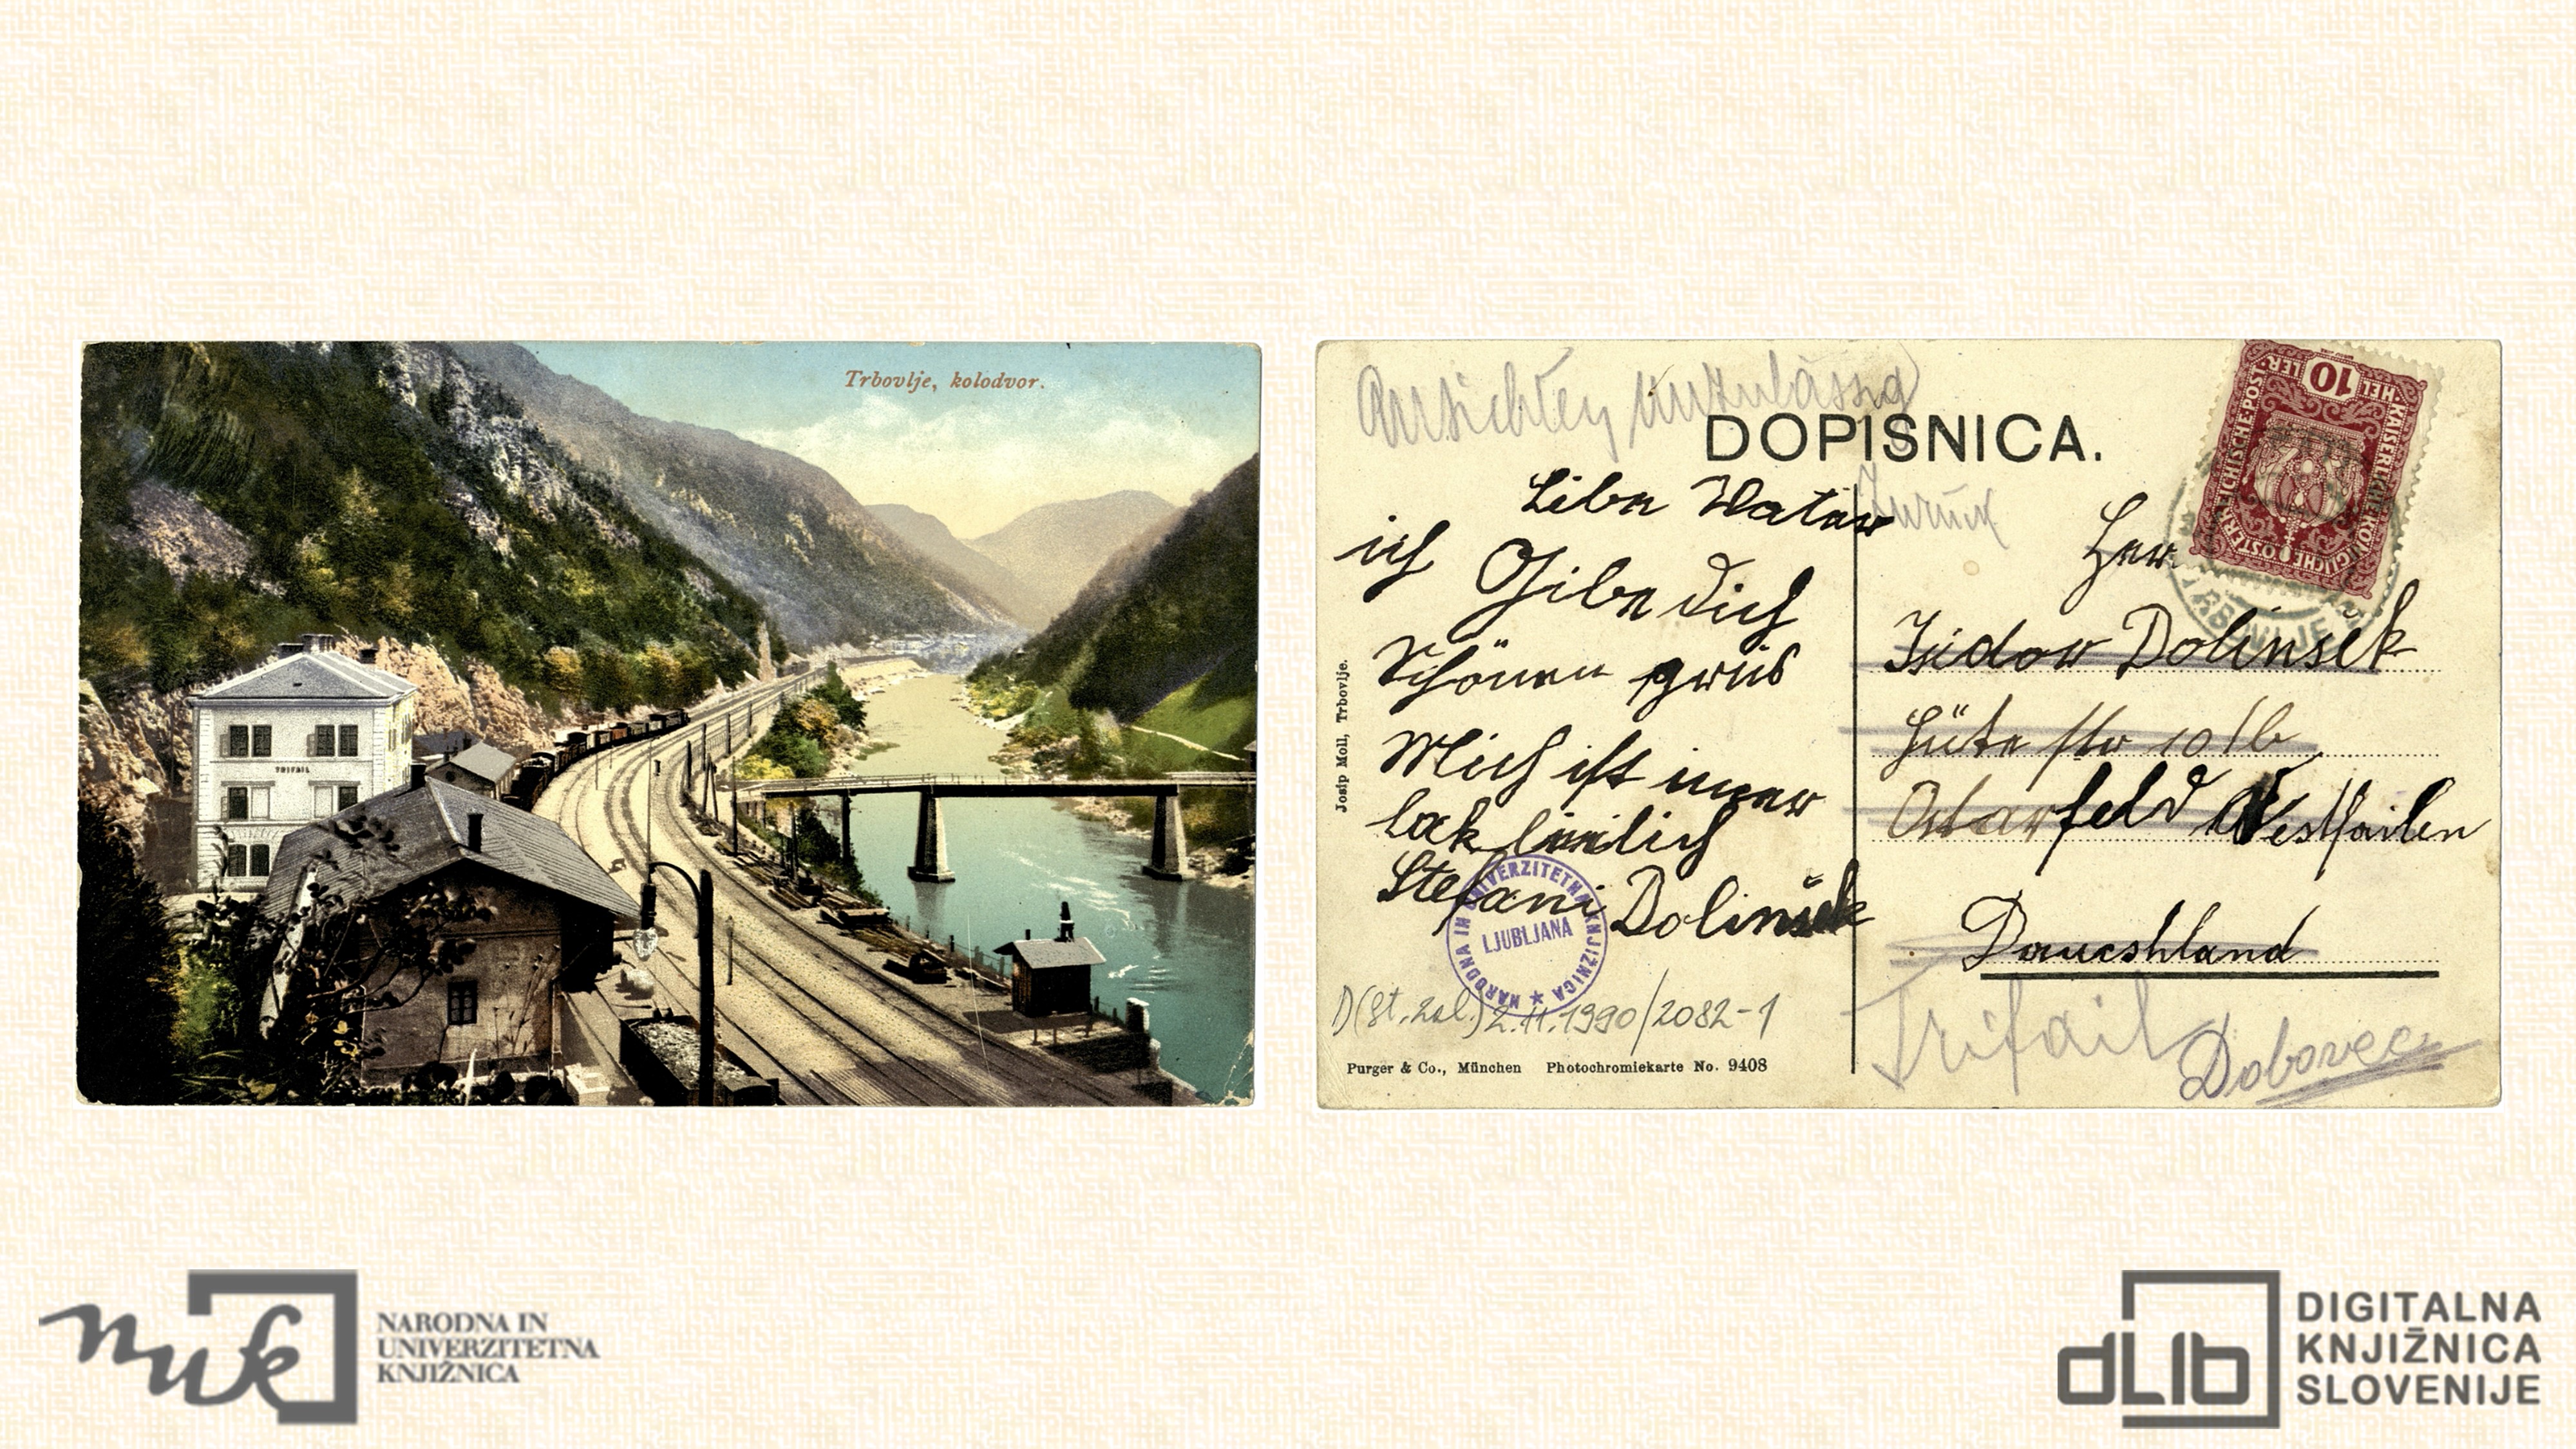 Trbovlje, kolodvor.
TRIFAIL
Ansichten unzulässig
DOPISNICA.
Zurück
Libn Vatar
ich Gibn dich
Schönen grüs
Mich ist imer
Stefani Dolinšek
Josip Moll, Trbovlje.
NARODNA IN UNIVERZITETNA KNJIŽNICA
LJUBLJANA
D(št. zal.) 2.11.1990/2082-1
Purger & Co., München Photochromiekarte No. 9408
KAISERLICHE KÖNIGLICHE ÖSTERREICHISCHE POST
10 HELLER
TRBOVLJE
Herr
Isidor Dolinšek
Hüte str 10/b
Ostarfeld Westfailen
Daucshland
Trifail
Dobovec
nuk
NARODNA IN
UNIVERZITETNA
KNJIŽNICA
dLib
DIGITALNA
KNJIŽNICA
SLOVENIJE